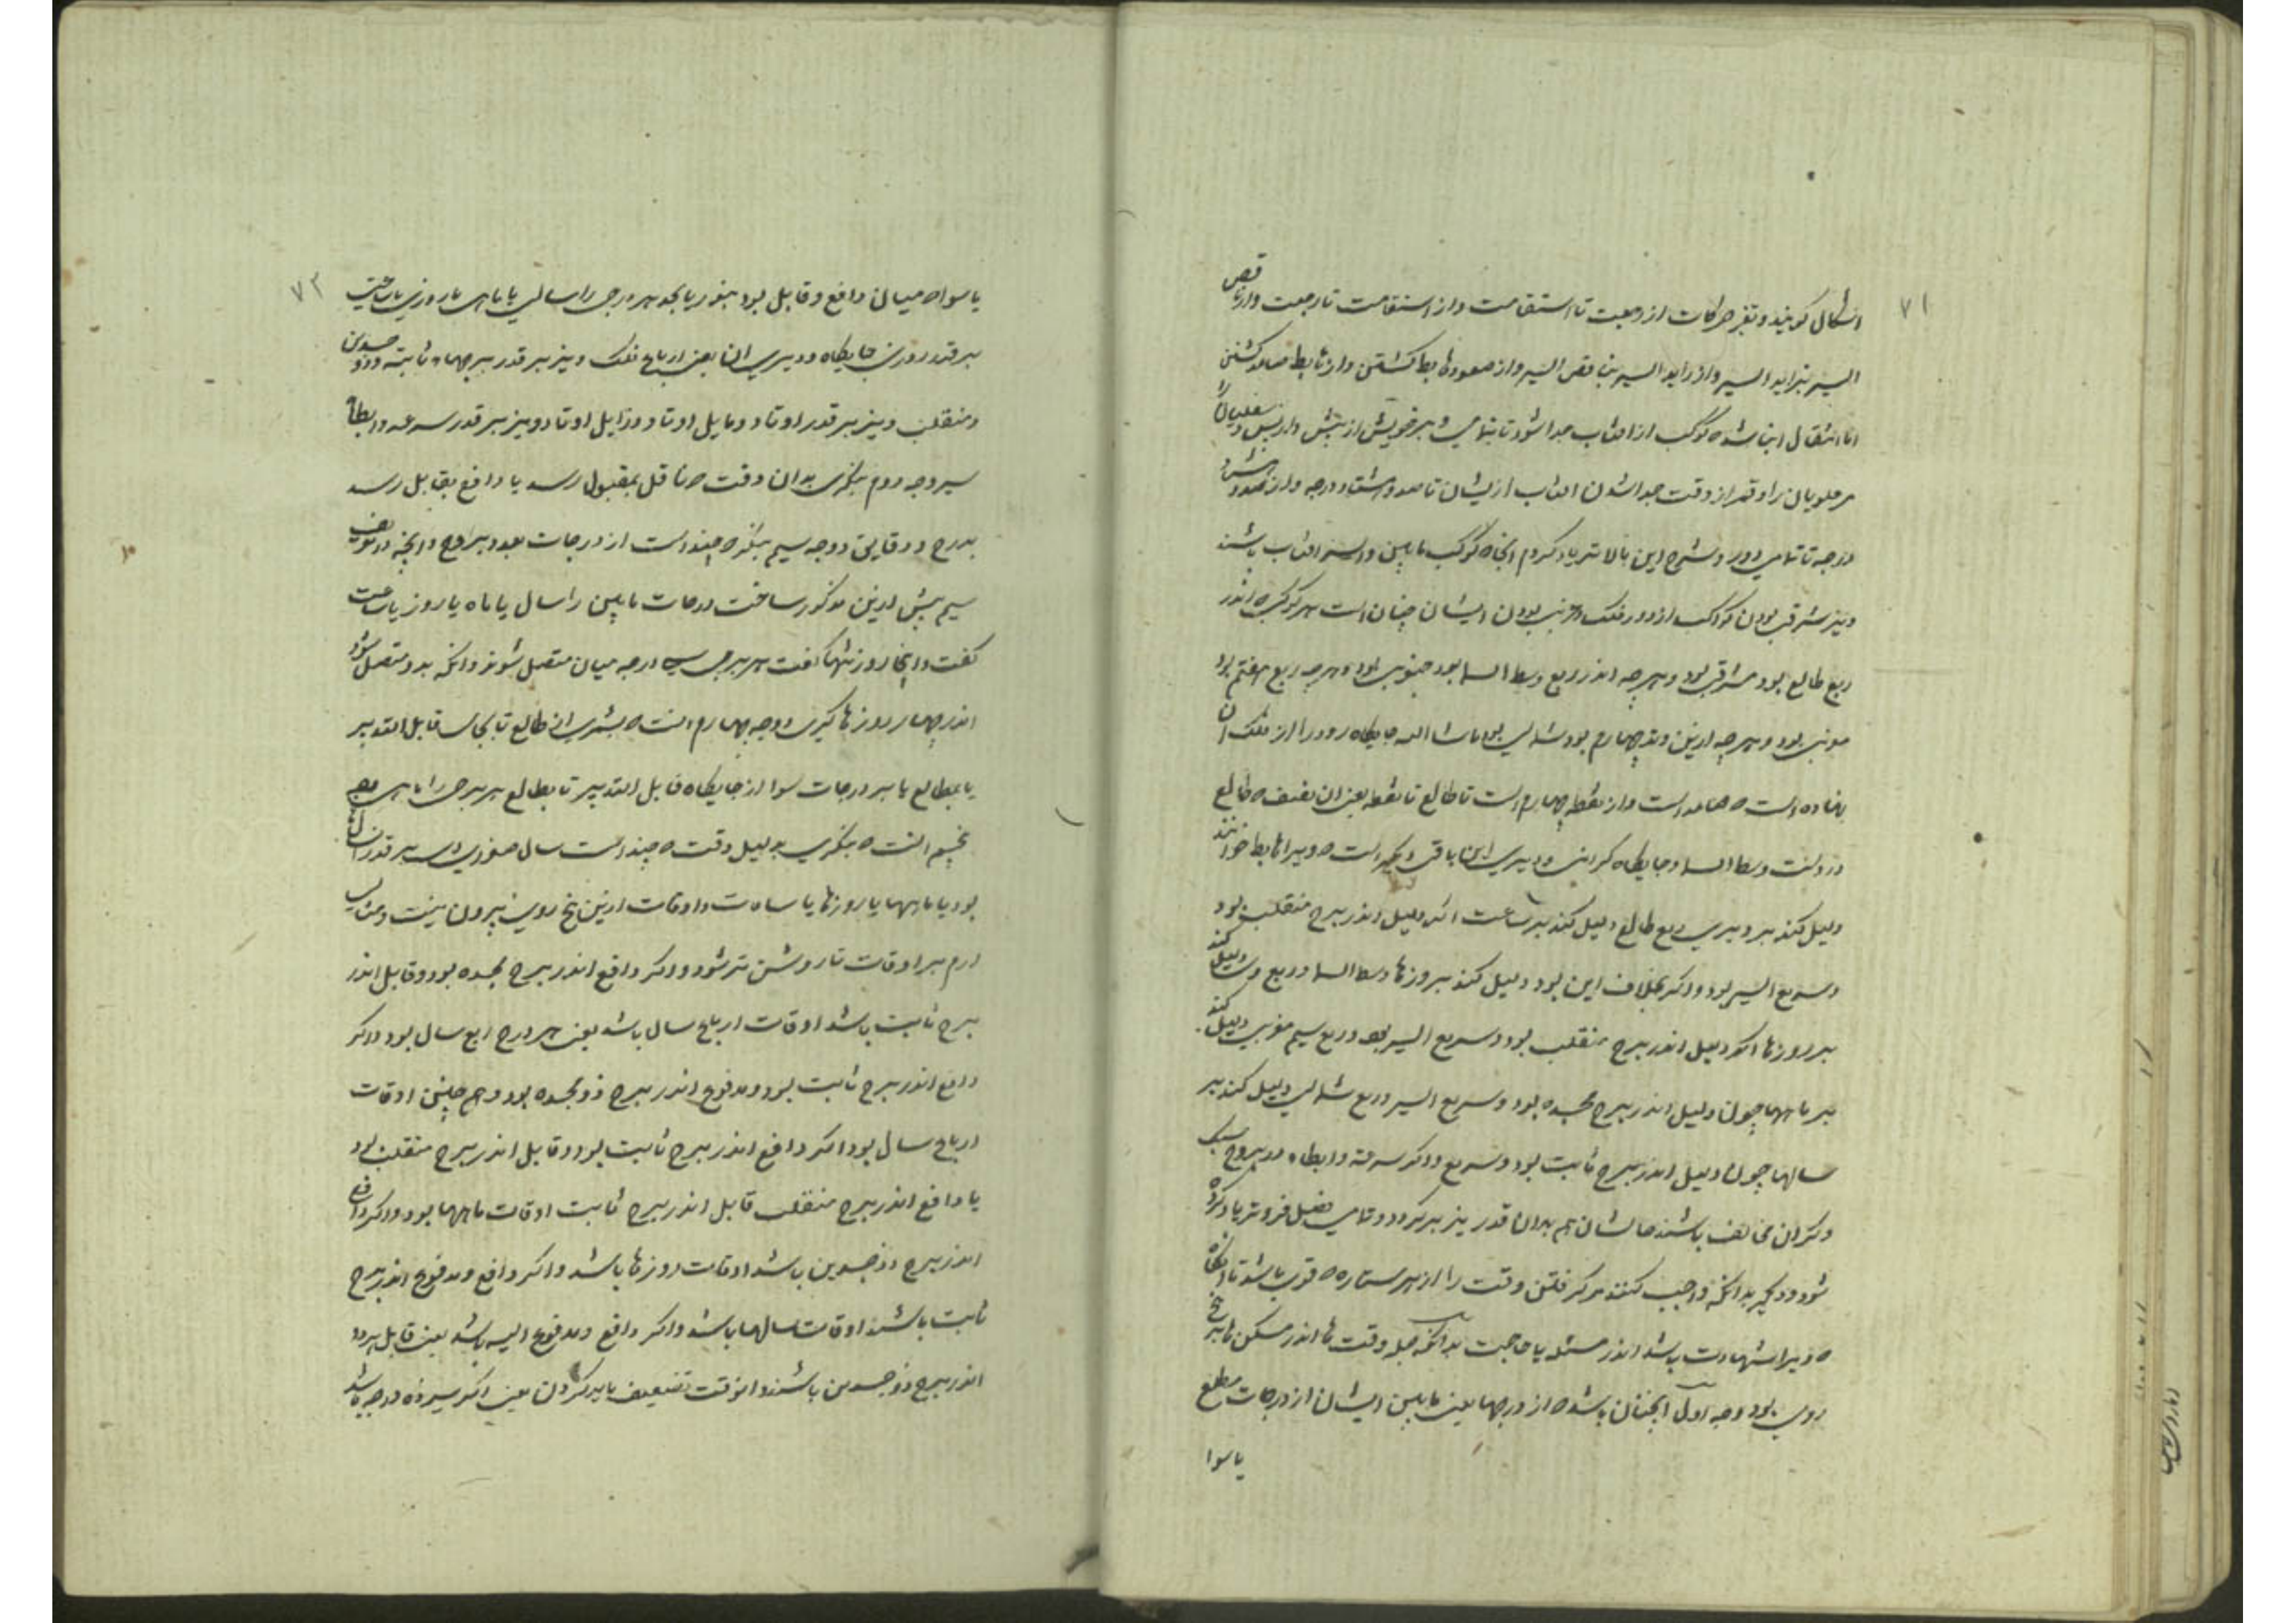 ۷۱
اشکال گویند و تغیر حرکات از رجعت تا استقامت و از استقامت تا رجعت و از ناقص
السیر بزاید السیر و از زاید السیر بناقص السیر و از صعود هابط گشتن و از هابط صاعد گشتن
اما انتقال این شده کوکب از افتاب جدا شود تا بتمامی و بر خویش از پیش و از پس سفلیان را
مر علویان را وقدر از وقت جدا شدن افتاب ازیشان تا صد و هشتاد درجه و از صد و هشتاد
درجه تا تمامی دور و شرح این بالاتر یاد کردم انجا که کوکب مابین و افتاب باشند
و نیز شرقی بودن کواکب از دور فلک و غربی بودن ایشان چنان است هر کوکب که اندر
ربع طالع بود شرقی بود و هرچه اندر ربع وسط السما بود جنوبی بود و هرچه ربع هفتم بود
مغربی بود و هرچه ازین وتد چهارم بود شمالی بود ماشاالله جایگاه دور را از فلک آن
نهاده است که صاعد است و از نقطه چهارم است تا طالع تا نقطه یعنی ان نصف که طالع
در وست وسط السما و جایگاه گرانی و دیری این باقی دیگر است که ویرا هابط خوانند
دلیل کند بر دیری ربع طالع دلیل کند بر ساعت اگر دلیل اندر برج منقلب بود
و سریع السیر بود و اگر بخلاف این بود دلیل کند بروزها وسط السما و ربع وی دلیل کند
بر روزها اگر دلیل اندر برج منقلب بود و سریع السیر بود و ربع سیم مغربی دلیل کند
بر ماهها چون دلیل اندر برج مجسده بود و سریع السیر و ربع شمالی دلیل کند بر
سالها چون دلیل اندر برج ثابت بود و سریع و اگر سرعة و ابطاء در بروج سبک
و گران مخالف باشند حالشان هم بدان قدر نیز بر گردد و تمامی تفصیل فروتر یاد کرده
شود و دیگر بدانکه واجب کنند مر گرفتن وقت را از هر ستاره که قوی باشد تا انگاه
که ویرا شهادت باشد اندر مسئله یا حاجت بدانکه جمله وقت ها اندر مسکن ها بر پنج
روی بود وجه اول انچنان باشد که از درجها یعنی مابین ایشان از درجات مطلع
یا سوا
۷۲
یا سواء میان دافع و قابل بود بنور یا بجد هر درجی را سالی یا ماهی یا روزی یا ساعتی
بر قدر زودی جایگاه و دیری ان یعنی ارباع فلک و نیز بر قدر برجهاء ثابته و ذو جسدین
و منقلب و نیز بر قدر اوتاد و مایل اوتاد و زایل اوتاد و نیز بر قدر سرعه و ابطاء
سیر وجه دوم بنگری بدان وقت که ناقل بمقبول رسد یا دافع بقابل رسد
بدرج و دقایق و وجه سیم بنگر که چند است از درجات بعد و بروج و انچه در تعریف
سیم پیش ازین مذکور ساخت درجات مابین را سال یا ماه یا روز یا ساعت
گفت و اینجا روز تنها گفت هر برجی سی درجه میان متصل شونده و انکه بدو متصل شود
اندر چهار روزها گیری و وجه چهارم انست که بشمری از طالع تا بجای قابل التدبیر
یا بمطالع یا بر درجات سوا از جایگاه قابل التدبیر تا بطالع هر برجی را ماهی وجه
پنجم انست که بنگری بدلیل وقت که چند است سال صغری وی بر قدر ان
بود یا ماهها یا روزها یا ساعات و اوقات ازین پنج روی بیرون نیست و مثالی
ارم بر اوقات تا روشن تر شود و اگر دافع اندر برج مجسده بود و قابل اندر
برج ثابت باشد اوقات ارباع سال باشد یعنی هر درج ربع سال بود و اگر
دافع اندر برج ثابت بود و مدفوع اندر برج ذو مجسده بود و هم چنین اوقات
ارباع سال بود اگر دافع اندر برج ثابت بود و قابل اندر برج منقلب بود
یا دافع اندر برج منقلب قابل اندر برج ثابت اوقات ماهها بود و اگر دافع
اندر برج ذو جسدین باشد اوقات روزها باشد و اگر دافع و مدفوع اندر برج
ثابت باشند اوقات سالها باشد و اگر دافع و مدفوع الیه باشد یعنی قابل هر دو
اندر برج ذو جسدین باشند انوقت تضعیف باید کردن یعنی اگر سیزده درجه باشد